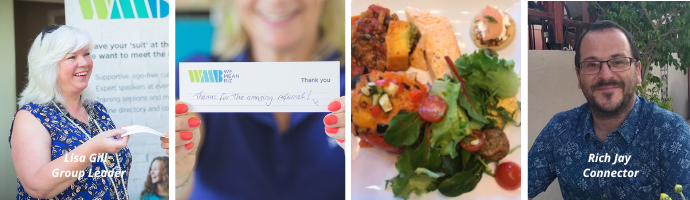 WMB
ave your 'suit' at th
e want to meet the
Supportive, ego-free cul
Expert speakers at every
Lisa Gill
Group Leader
WMB WE
MEAN
BIZ
Thank you
Thanks for the amazing referral! x
Rich Jay
Connector